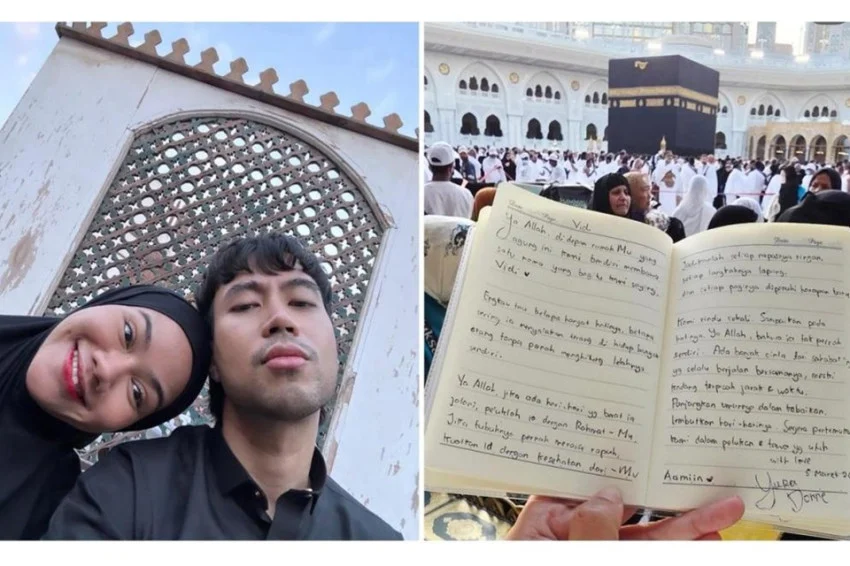 Date: Page: Vidi
Ya Allah, di depan rumah Mu yang
agung ini kami berdiri membawa
satu nama yang begitu kami sayang,
Vidi ♥
Engkau tau, betapa hangat hatinya, betapa
sering ia menyalakan terang di hidup banyak
orang tanpa pernah menghitung lelahnya
sendiri.
Ya Allah, jika ada hari-hari yg berat ia
jalani, peluklah ia dengan Rahmat-Mu.
Jika tubuhnya pernah merasa rapuh,
kuatkan ia dengan kesehatan dari-Mu
Date: Page:
Jadikanlah setiap napasnya ringan,
setiap langkahnya lapang,
dan setiap paginya dipenuhi harapan baru
Kami rindu sekali. Sampaikan pada
hatinya Ya Allah, bahwa ia tak pernah
sendiri. Ada banyak cinta dari sahabat2
yg selalu berjalan bersamanya, meski
kadang terpisah jarak & waktu.
Panjangkan umurnya dalam kebaikan.
Lembutkan hari-harinya. Segera pertemukan
kami dalam pelukan & tawa yg utuh
with love
5 Maret 20
Aamiin ♥
Yura